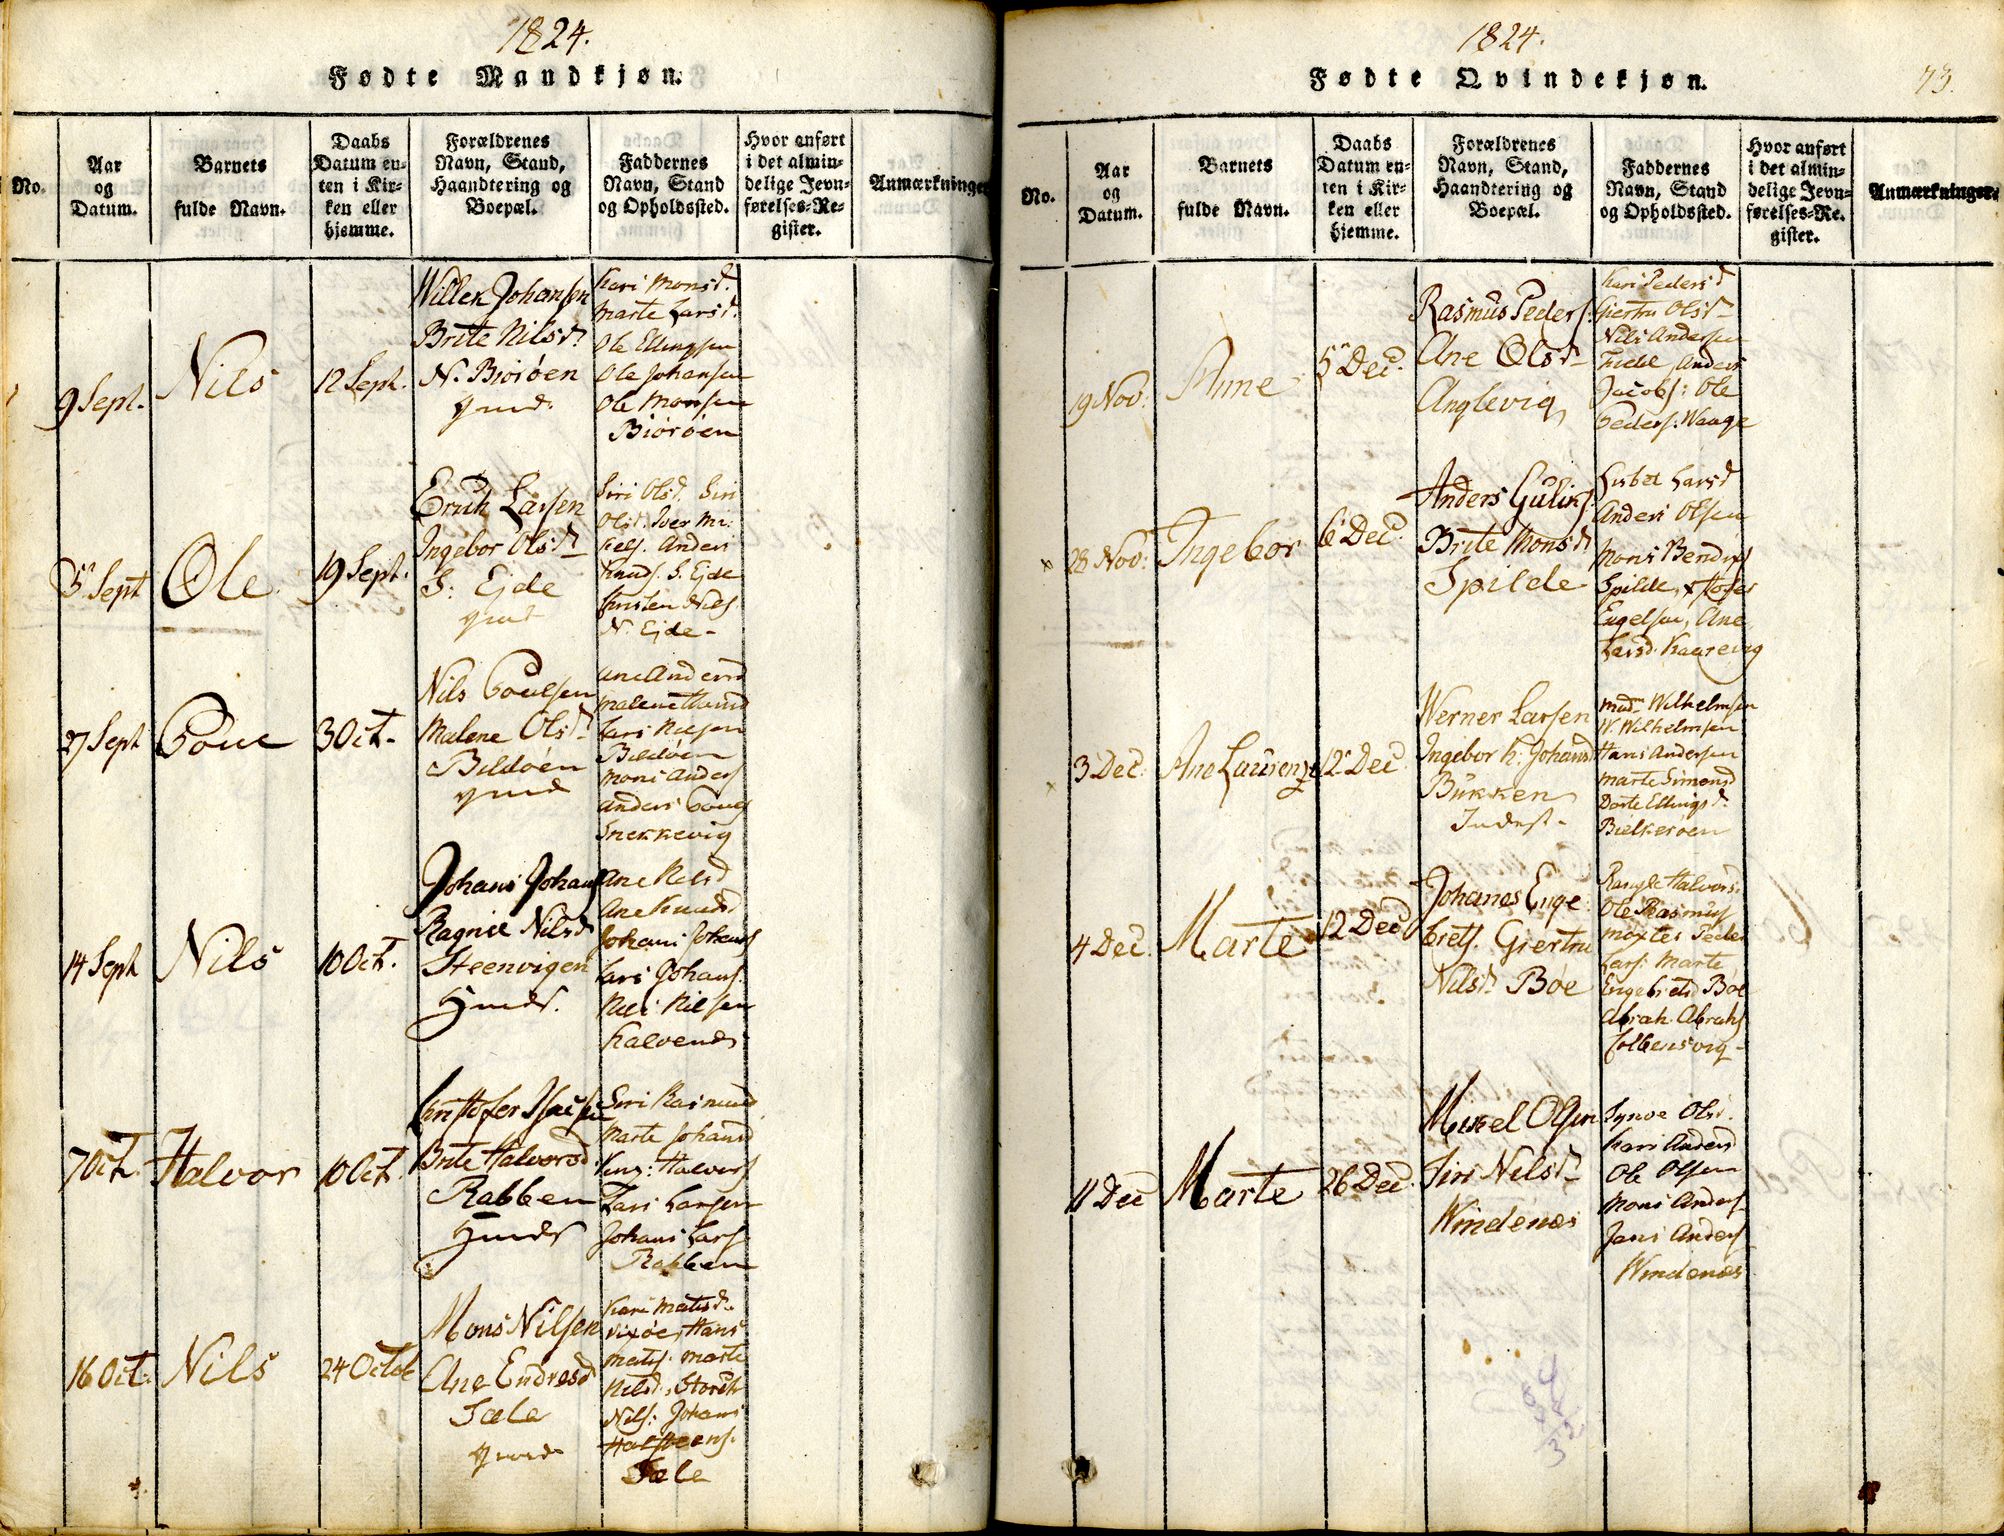 1824.
Fødte Mandkjøn.
No.
Aar
og
Datum.
Barnets
fulde Navn.
Daabs
Datum en-
ten i Kir-
ken eller
hjemme.
Forældrenes
Navn, Stand,
Haandtering og
Boepæl.
Faddernes
Navn, Stand
og Opholdssted.
Hvor anført
i det almin-
delige Jevn-
førelses-Re-
gister.
Anmærkninger
9 Sept.
Nils
12 Sept.
Willen Johansen
Brite Nilsd.
N. Biorøen
gmd.
Kari Monsd.
Marte Larsd.
Ole Ellingsen
Ole Johansen
Ole Monsen
Biorøen
5 Sept
Ole
19 Sept.
Erich Larsen
Ingebor Olsd
S. Ejde
gmd
Siri Olsd. Siri
Olsd. Iver Mi:
kels. Anders
Knuds. S. Ejde
Christen Nils.
N. Ejde
27 Sept
Poul
3 Oct.
Nils Poulsen
Malene Olsd
Bildøen
gmd
Ane Andersd
Malene Hansd
Lars Nilsen
Bildøen
Mons Anders
Anders Pouls
Snekkevig
14 Sept
Nils
10 Oct.
Johans Johans
Ragnil Nilsd
Steenvigen
Huusm.
Ane Nilsd
Ane Knudsd
Johans Johans
Lars Johans.
Nils Nilsen
Kalvenæs
7 Oct.
Halvor
10 Oct.
Christofer
Brite Halvorsd.
Rabben
Siri Rasmusd
Marte Johansd
Halvors
Lars Larsen
Johans Lars.
Rabben
16 Oct.
Nils
24 Octob
Mons Nilsen
Ane Endresd
Tæle
gmd
Kari Matisd.
Vixøe, Hans
Matis. Marte
Nilsd., Storch
Nils: Johans
Halsteens.
Tæle
1824.
Fødte Qvindekjøn.
73.
No.
Aar
og
Datum.
Barnets
fulde Navn.
Daabs
Datum en-
ten i Kir-
ken eller
hjemme.
Forældrenes
Navn, Stand,
Haandtering og
Boepæl.
Faddernes
Navn, Stand
og Opholdssted.
Hvor anført
i det almin-
delige Jevn-
førelses-Re-
gister.
Anmærkninger.
19 Nov:
Anne
5 Dec.
Rasmus Peders.
Ane Olsd
Anglevig
Kari Pedersd
Giertru Olsd
Nils Andersen
Anders
Jacobs: Ole
Peders. Waage
28 Nov:
Ingebor
6 Dec.
Anders Guliks.
Brite Monsd
Spilde
Lisbet Larsd
Anders Olsen
Mons Bendix
Spilde, Xstofer
Engelsen, Ane
Larsd. Kaarevig
3 Dec.
Ane Laurenze
12 Dec.
Werner Larsen
Ingebor K. Johansd
Bukken
Inderst
Mad. Wilhelmsen
W. Wilhelmsen
Hans Andersen
Marte Simonsd
Dorte Ellingsd.
Bielkerøen
4 Dec.
Marte
12 Dec
Johanes Enge:
brets. Giertru
Nilsd. Bøe
Rangle Halvors.
Ole Rasmus
Peder
Lars: Marte
Engebretsd Bøe
Abrah. Abrahs
Kolbensvig
11 Dec
Marte
26 Dec.
Mikel Olsen
Siri Nilsd
Windenæs
Synve Olsd.
Kari Andersd
Ole Olsen
Mons Anders
Jans Anders
Windenæs